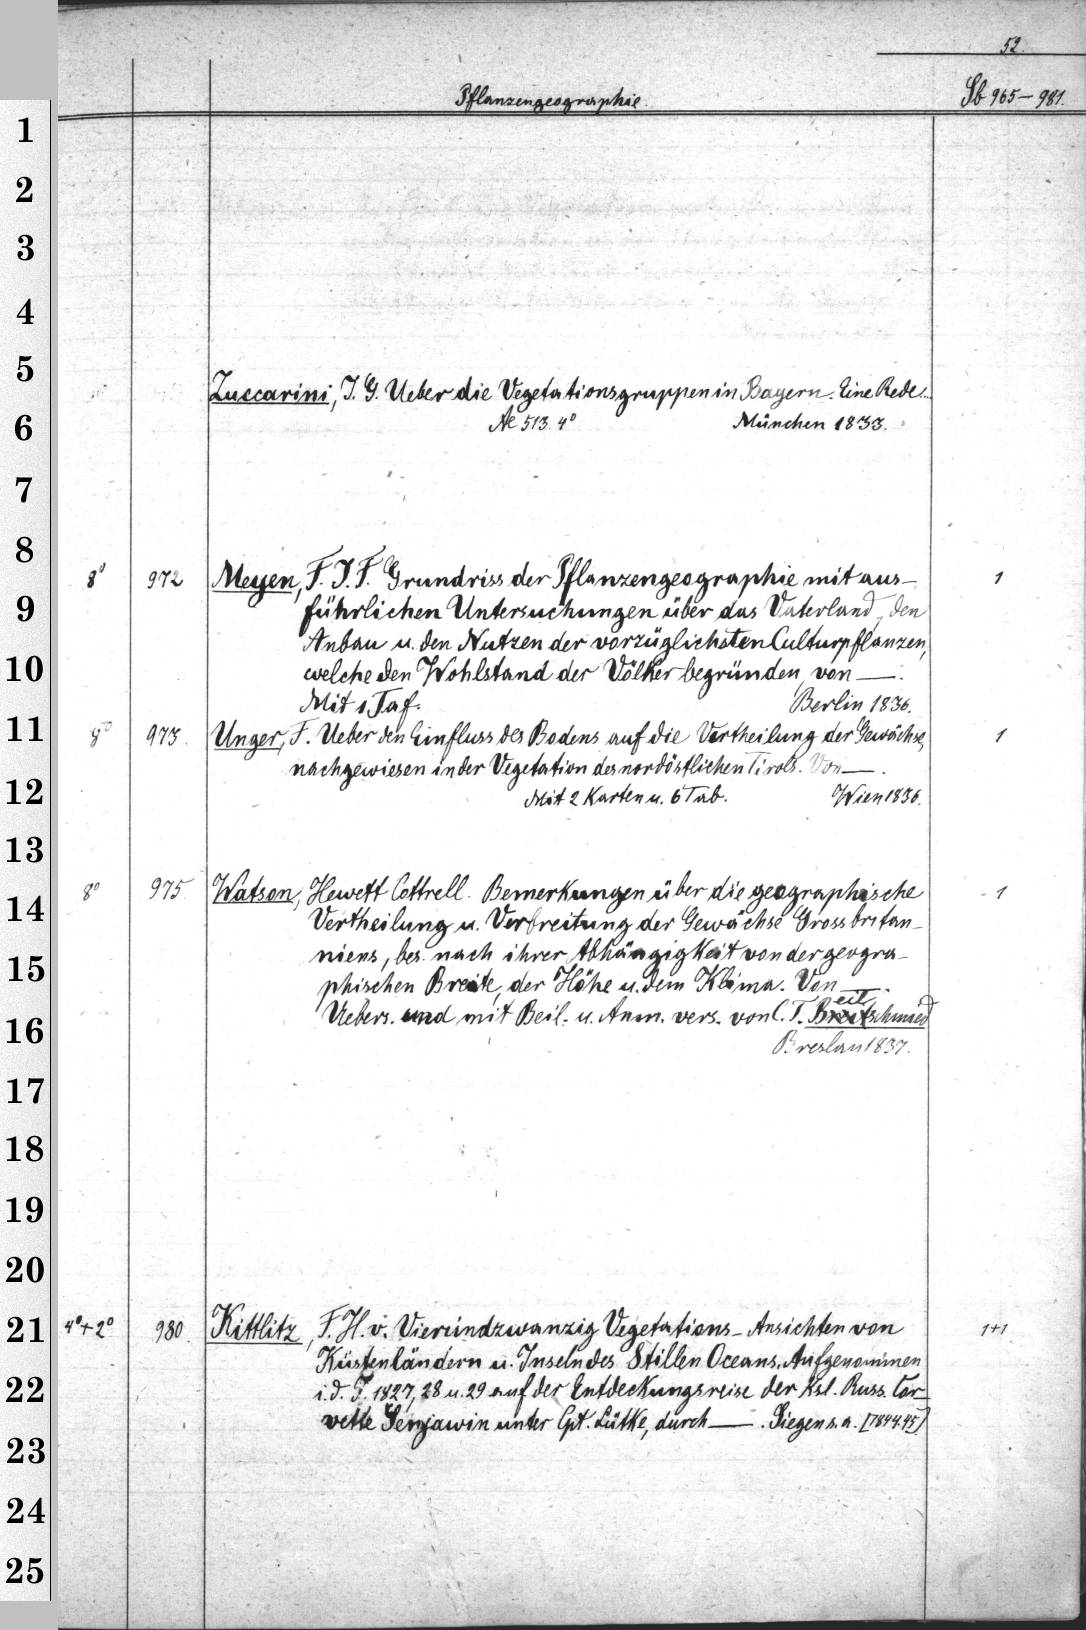 52.
Pflanzengeographie. Sb 965-981.
1
2
3
4
5
Zuccarini, J. G. Ueber die Vegetationsgruppen in Bayern. Eine Rede.
6
Ae 513. 4° München 1833.
7
8
8° 972 Meyen, F. J. F. Grundriss der Pflanzengeographie mit aus- 1
9
führlichen Untersuchungen über das Vaterland, den
Anbau u. den Nutzen der vorzüglichsten Culturpflanzen,
10
welche den Wohlstand der Völker begründen, von —.
Mit 1 Taf. Berlin 1836.
11
8° 973. Unger, F. Ueber den Einfluss des Bodens auf die Vertheilung der Gewächse, 1
nachgewiesen in der Vegetation des nordöstlichen Tirols. Von —.
12
Mit 2 Karten u. 6 Tab. Wien 1836.
13
8° 975. Watson, Hewett Cottrell. Bemerkungen über die geographische 1
14
Vertheilung u. Verbreitung der Gewächse Grossbritan-
niens, bes. nach ihrer Abhängigkeit von der geogra-
15
phischen Breite, der Höhe u. dem Klima. Von —.
eil
16
Uebers. und mit Beil. u. Anm. vers. von C. T. Breitschmied
Breslau 1837.
17
18
19
20
21
4°+2° 980. Kittlitz, F. H. v. Vierundzwanzig Vegetations-Ansichten von 1+1
Küstenländern u. Inseln des Stillen Oceans. Aufgenommen
22
i. d. J. 1827, 28 u. 29 auf der Entdeckungsreise der Ksl. Russ. Cor-
vette Senjawin unter Cpt. Lütke, durch —. Siegen s. a. [1844.45]
23
24
25